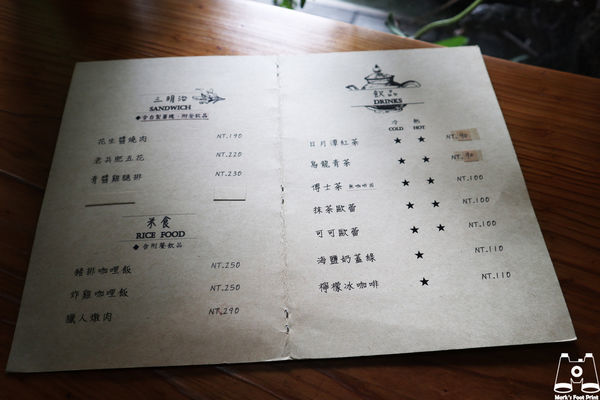 三明治
SANDWICH
◆含自製薯塊，附餐飲品
花生醬燒肉 NT.190
老兵肥五花 NT.220
青醬雞腿排 NT.230
米食
RICE FOOD
◆含附餐飲品
豬排咖哩飯 NT.250
炸雞咖哩飯 NT.250
獵人燉肉 NT.290
飲品
DRINKS
冷 熱
COLD HOT
日月潭紅茶 ★ ★ NT.90
烏龍青茶 ★ ★ NT.90
博士茶 無咖啡因 ★ ★ NT.100
抹茶歐蕾 ★ ★ NT.100
可可歐蕾 ★ ★ NT.100
海鹽奶蓋綠 ★ NT.110
檸檬冰咖啡 ★ NT.110
Mark's Foot Print